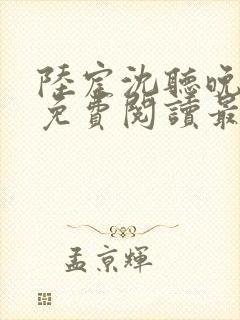 陸宧沈聽晚
免費閱讀最
孟京輝